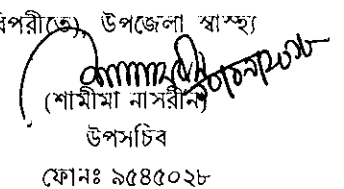 বিপরীতে), উপজেলা স্বাস্থ্য
(শামীমা নাসরীন)
উপসচিব
ফোনঃ ৯৫৪৫০২৮